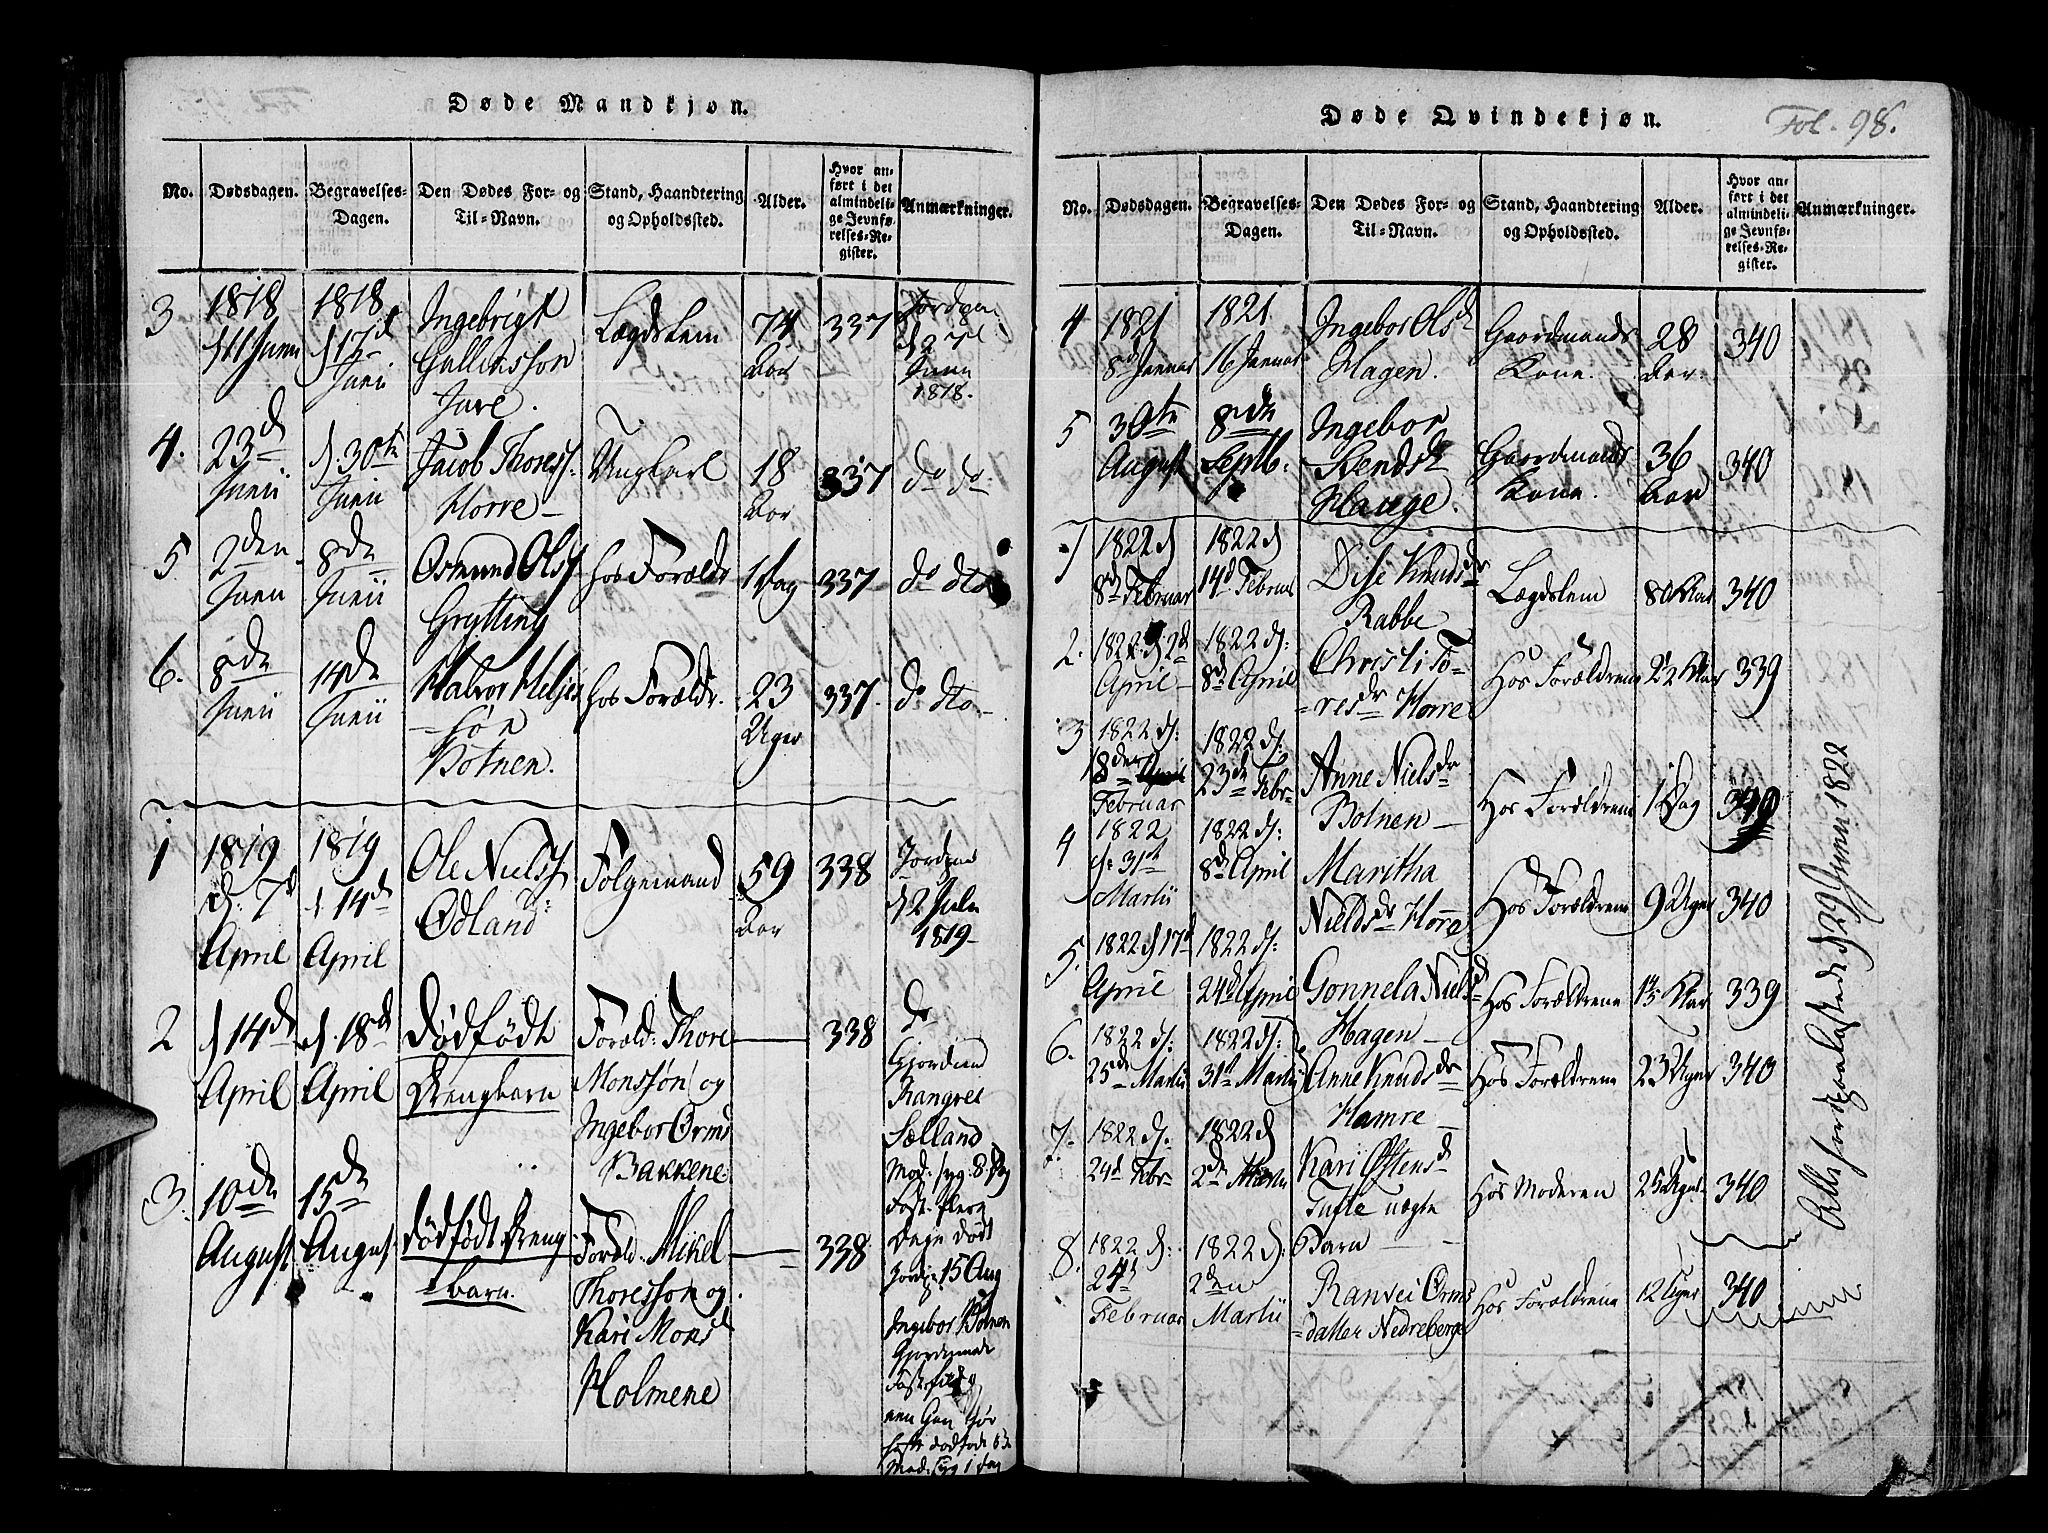 Døde Mandkjøn.
No.
Dødsdagen.
Begravelses-
Dagen.
Den Dødes For- og
Til-Navn.
Stand, Haandtering
og Opholdssted.
Alder.
Hvor an-
ført i det
almindeli-
ge Jevnfø-
relses-Re-
gister.
Anmærkninger.
3
1818
d 11 Junii
1818
d 17d
Junii
Ingebrigt
Gallensson
Jure.
Lægdslem
74
Aar
337
Jordgan
d 27d
Junii
1818.
4.
23d
Junii
d. 30te
Junii
Jacob Thoress.
Horre
Ungkarl
18
Aar
337
do do
5
2den
Junii
8de
Junii
Osmund Olss
Grytting
hos Foræld:
1 Dag
337
do dto
6.
8de
Junii
14de
Junii
Halvor Heljes
søn
Botnen.
hos Foræld:
23
Uger
337.
do dto
1
1819
d: 7d
April
1819
d 14de
April
Ole Nielss
Ødland
Følgemand
59
Aar
338
Jordgan
d 2 Julii
1819
2
d 14de
April
d. 18de
April
Dødfødt
Drengbarn
Foræld: Thore
Monssøn og
Ingebor Orms
Bakkene
338
do
Gjordem
Rangrei
Sælland
Mod: syg 8 Dag
3.
10de
August
15de
August
dødfødt Dreng
barn.
Foræld: Mikel
Thoresson og
Kari Monsd
Holmene
338
død
Jordg 15 Aug
Ingebor Botnen
Gjordemod
Mod. syg 1 dag
Døde Qvindekjøn.
Fol. 98.
No.
Dødsdagen.
Begravelses-
Dagen.
Den Dødes For- og
Til-Navn.
Stand, Haandtering
og Opholdssted.
Alder.
Hvor an-
ført i det
almindeli-
ge Jevnfø-
relses-Re-
gister.
Anmærkninger.
4
1821
8d Januar
1821
16 Januar
Ingebor Olsd
Hagen.
Gaardmands
Kone.
28
Aar.
340
5
30te
August
8de
Septb:
Ingebor
Svendsd
Hauge.
Gaardmands
Kone.
36
Aar
340
1
1822 d
8d Februar
1822 d
14d Februar
Dise Knudsdr
Rabbe
Lægdslem
80 Aar
340
2.
1822 d 2d
April
1822 d:
8d April
Christi To-
resdr Horre
Hos Forældrene
22 Aar
339
3
1822 d:
18den April
Februar
1822 d:
23de Febr
Anne Nielsdr
Botnen
Hos Forældrene
1 Dag
340
4
1822
d: 31te
Martii
1822 d:
8d April
Maritha
Nieldsdr Horre
Hos Forældrene
9 Uger
340
5.
1822 d 17d
April
1822 d:
24d April
Gonnela Nielsd
Hagen
Hos Forældrene
13 Aar
339
6.
1822 d:
25de Martii
1822 d:
31d Martii
Anne Knudsdr
Hamre
Hos Forældrene
23 Uger
340
7.
1822 d:
24d Febr
1822 d
2de Martii
Kari Østensd
Tufte uægte
Barn
Hos Moderen
25 Uger
340
8.
1822 d:
24d
Februar
1822 d:
2den
Martii
Ranvei Orms
datter Nedreberge
Hos Forældrene
12 Uger
340
Alle jordpaakastede d 29 Junii 1822